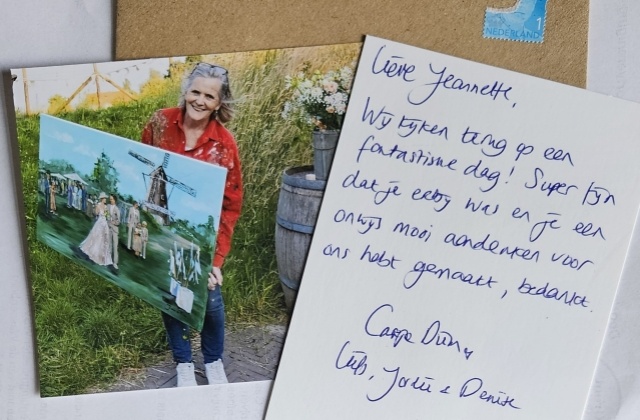 NEDERLAND 1
Lieve Jeannette,
Wij kijken terug op een
fantastische dag! Super fijn
dat je erbij was en je een
onwijs mooi aandenken voor
ons hebt gemaakt, bedankt.
Carpe Diem
Liefs, & Denise